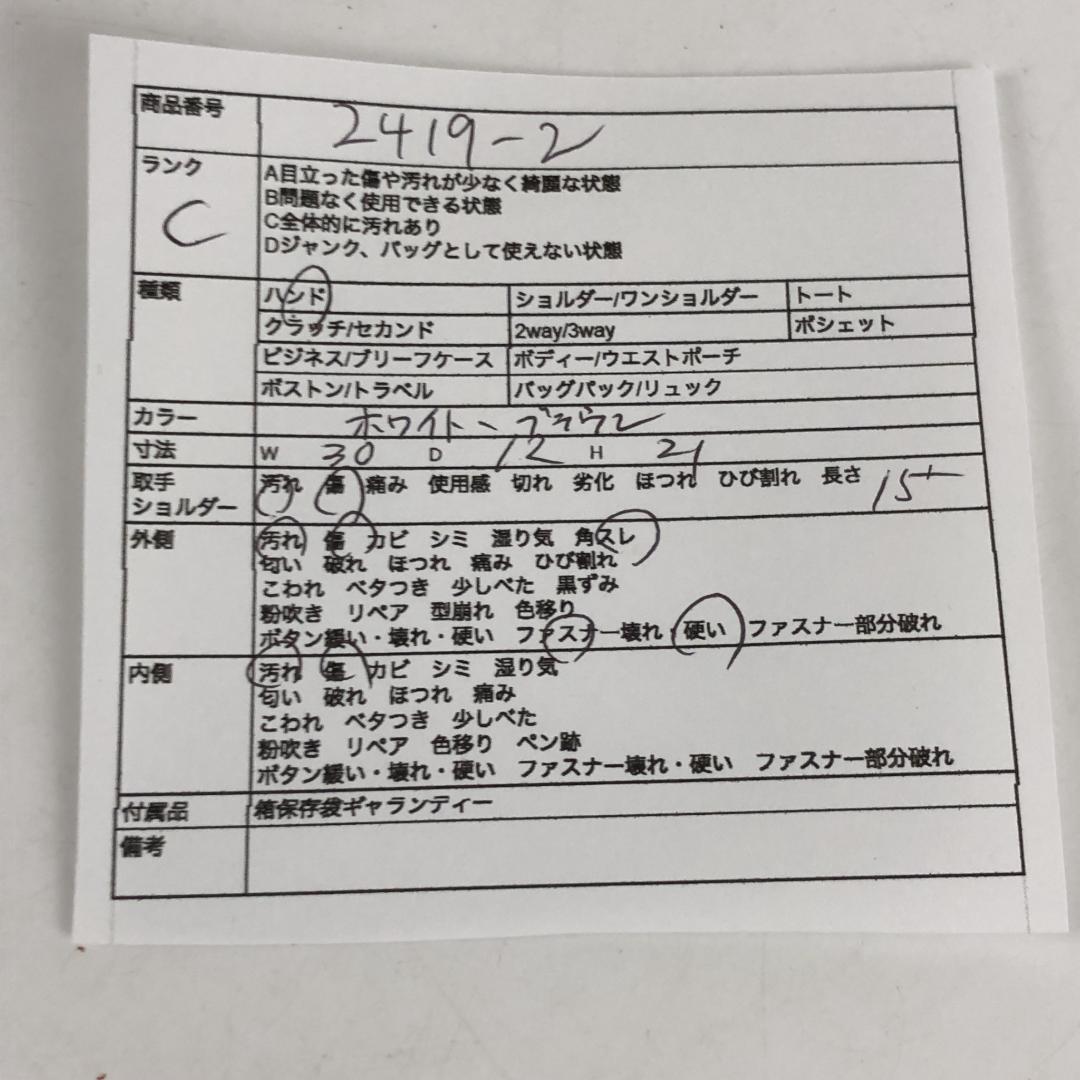 商品番号 2419-2
ランク C
A目立った傷や汚れが少なく綺麗な状態
B問題なく使用できる状態
C全体的に汚れあり
Dジャンク、バッグとして使えない状態
種類 ハンド ショルダー/ワンショルダー トート
クラッチ/セカンド 2way/3way ポシェット
ビジネス/ブリーフケース ボディー/ウエストポーチ
ボストン/トラベル バッグパック/リュック
カラー ホワイト、ブラウン
寸法 W 30 D 12 H 21
取手 汚れ 傷 痛み 使用感 切れ 劣化 ほつれ ひび割れ 長さ 15+
ショルダー
外側 汚れ 傷 カビ シミ 湿り気 角スレ
匂い 破れ ほつれ 痛み ひび割れ
こわれ ベタつき 少しべた 黒ずみ
粉吹き リペア 型崩れ 色移り
ボタン緩い・壊れ・硬い ファスナー壊れ・硬い ファスナー部分破れ
内側 汚れ 傷 カビ シミ 湿り気
匂い 破れ ほつれ 痛み
こわれ ベタつき 少しべた
粉吹き リペア 色移り ペン跡
ボタン緩い・壊れ・硬い ファスナー壊れ・硬い ファスナー部分破れ
付属品 箱保存袋ギャランティー
備考